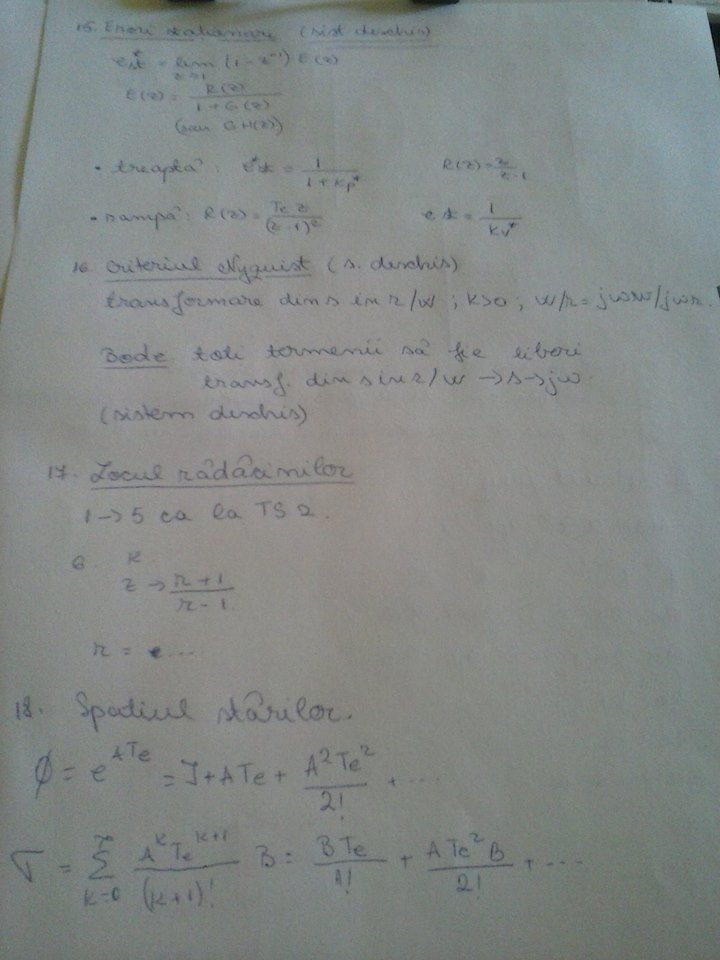 15. Erori staționare (sist deschis)
e*st = lim z→1 (1 - z⁻¹) E(z)
E(z) = R(z) / 1 + G(z)
(sau GH(z))
• treaptă : e*st = 1 / 1 + Kp* R(z) = z / z-1
• rampă : R(z) = Te z / (z-1)² e st = 1 / Kv*
16. Criteriul Nyquist (s. deschis)
transformare din s in r/w ; K>0 ; w/r = jωw/jωr.
Bode toti termenii să fie liberi
transf. din s in r/w → s → jω.
(sistem deschis)
17. Locul rădăcinilor
1 → 5 ca la TS 2.
6. K
z → r+1 / r-1
r = ....
18. Spatiul stărilor.
Φ = e^ATe = I + ATe + A²Te² / 2! + ....
Γ = ∑ k=0 ∞ A^k Te^k+1 / (k+1)! B = BTe / 1! + ATe²B / 2! + ...